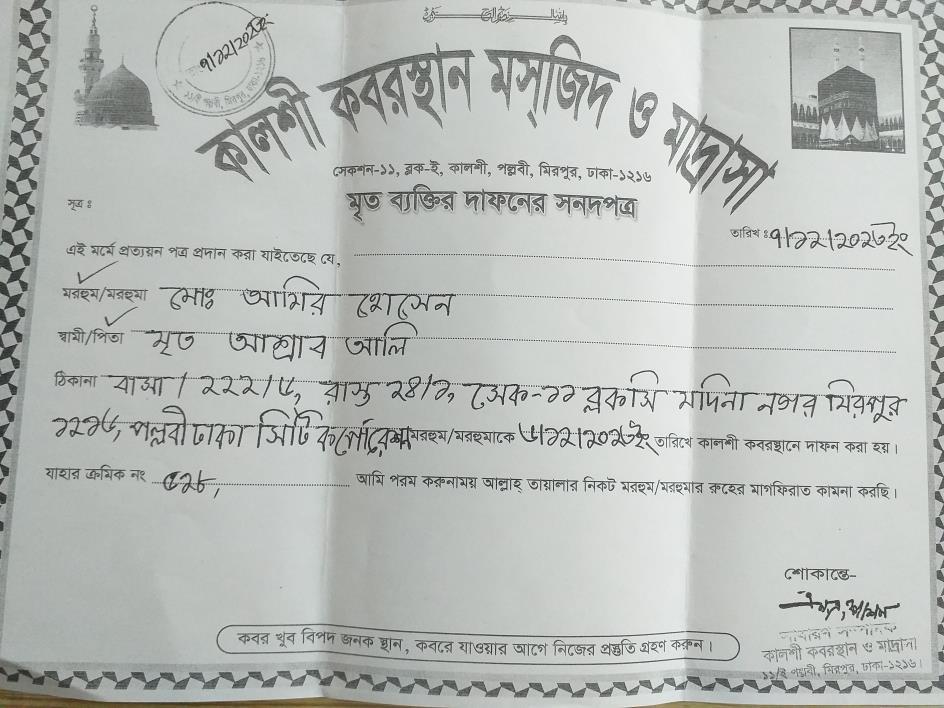 ৭/১২/২০২৩ইং
কালশী কবরস্থান মস্‌জিদ ও মাদ্রাসা
সেকশন-১১, ব্লক-ই, কালশী, পল্লবী, মিরপুর, ঢাকা-১২১৬
মৃত ব্যক্তির দাফনের সনদপত্র
সূত্র ঃ
তারিখ ঃ ৭/১২/২০২৩ইং
এই মর্মে প্রত্যয়ন পত্র প্রদান করা যাইতেছে যে,
মরহুম/মরহুমা মোঃ আমির হোসেন
স্বামী/পিতা মৃত আশ্রাব আলি
ঠিকানা বাসা / ২২২/৫, রাস্তা ২৪/১, সেক-১১ ব্লকসি মদিনা নগর মিরপুর
১২১৬, পল্লবী ঢাকা সিটি কর্পোরেশন মরহুম/মরহুমাকে ৬/১২/২০২৩ইং তারিখে কালশী কবরস্থানে দাফন করা হয়।
যাহার ক্রমিক নং ৫২৮, আমি পরম করুনাময় আল্লাহ্ তায়ালার নিকট মরহুম/মরহুমার রুহের মাগফিরাত কামনা করছি।
শোকান্তে-
কালশী কবরস্থান ও মাদ্রাসা
১১/ই পল্লবী, মিরপুর, ঢাকা-১২১৬।
কবর খুব বিপদ জনক স্থান, কবরে যাওয়ার আগে নিজের প্রস্তুতি গ্রহণ করুন।